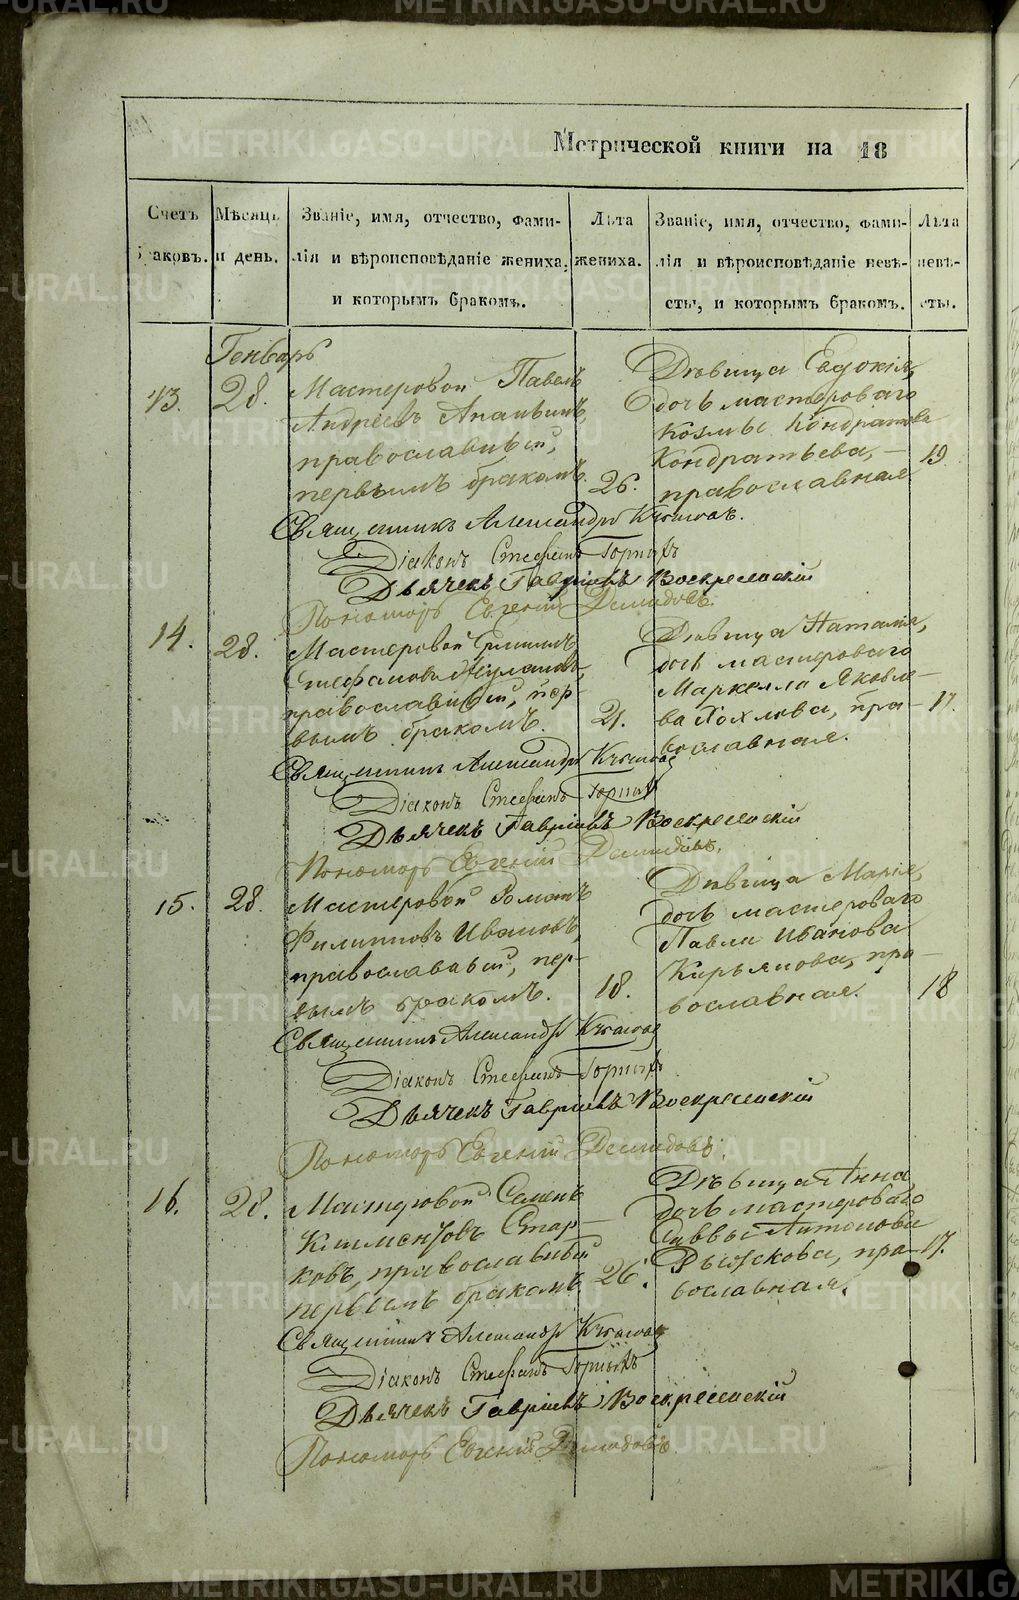 Метрической книги на 18
Счетъ браковъ.
Мѣсяцъ и день.
Званіе, имя, отчество, фами-
лія и вѣроисповѣданіе жениха,
и которымъ бракомъ.
Лѣта
жениха.
Званіе, имя, отчество, фами-
лія и вѣроисповѣданіе невѣ-
сты, и которымъ бракомъ.
Лѣта
невѣ-
сты.
Генварь
13.
28.
Мастеровой Павелъ
Андреевъ
православный,
первымъ бракомъ.
26.
Дѣвица Евдокія,
дочь мастероваго
Козмы Кондратова
Кондратьева,
православная
19
Священникъ Александръ
Діаконъ Стефанъ Горныхъ
Дьячекъ Гавріилъ Воскресенскій
Пономарь Евгеній Демидовъ.
14.
28.
Мастеровой
Стефановъ
православный, пер
вымъ бракомъ.
21.
Дѣвица Наталія,
дочь мастероваго
Маркелла Яковле-
ва Хохлова, пра-
вославная.
17.
Священникъ Александръ
Діаконъ Стефанъ Горныхъ
Дьячекъ Гавріилъ Воскресенскій
Пономарь Евгеній Демидовъ.
15.
28.
Мастеровой Романъ
Филипповъ Ивановъ,
православный, пер-
вымъ бракомъ.
18.
Дѣвица Марія,
дочь мастероваго
Павла Иванова
Кирьянова, пра-
вославная.
18
Священникъ Александръ
Діаконъ Стефанъ Горныхъ
Дьячекъ Гавріилъ Воскресенскій
Пономарь Евгеній Демидовъ.
16.
28.
Мастеровой Семенъ
Климентовъ Стар-
ковъ, православный
первымъ бракомъ.
26.
Дѣвица Анна
дочь мастероваго
Саввы Антонова
Рыжкова, пра-
вославная.
17.
Священникъ Александръ
Діаконъ Стефанъ Горныхъ
Дьячекъ Гавріилъ Воскресенскій
Пономарь Евгеній Демидовъ.
METRIKI.GASO-URAL.RU